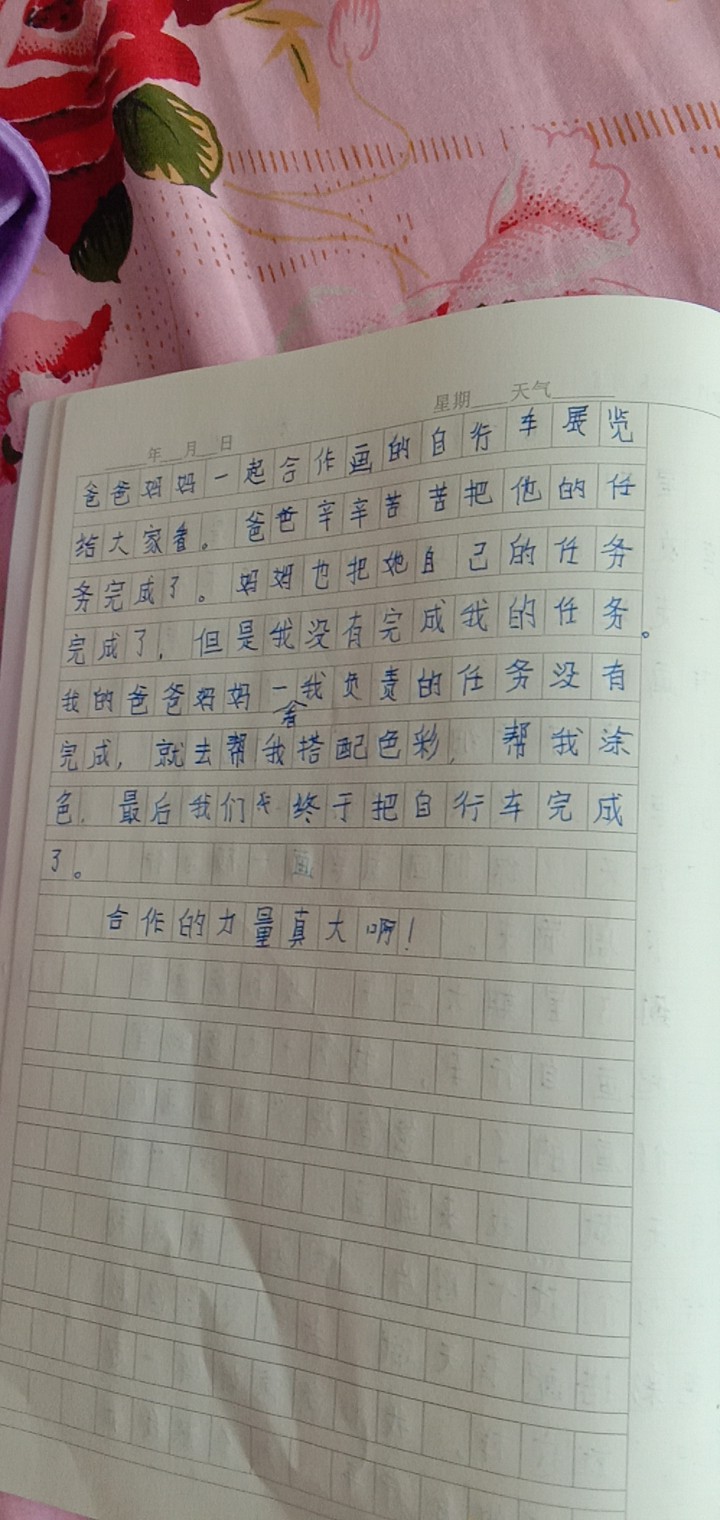 星期____天气____
____年__月__日
爸爸妈妈一起合作画的自行车展览
给大家看。爸爸辛辛苦苦把他的任
务完成了。妈妈也把她自己的任务
完成了，但是我没有完成我的任务。
我的爸爸妈妈一看我负责的任务没有
完成，就去帮我搭配色彩，帮我涂
色．最后我们终于把自行车完成
了。
合作的力量真大啊！